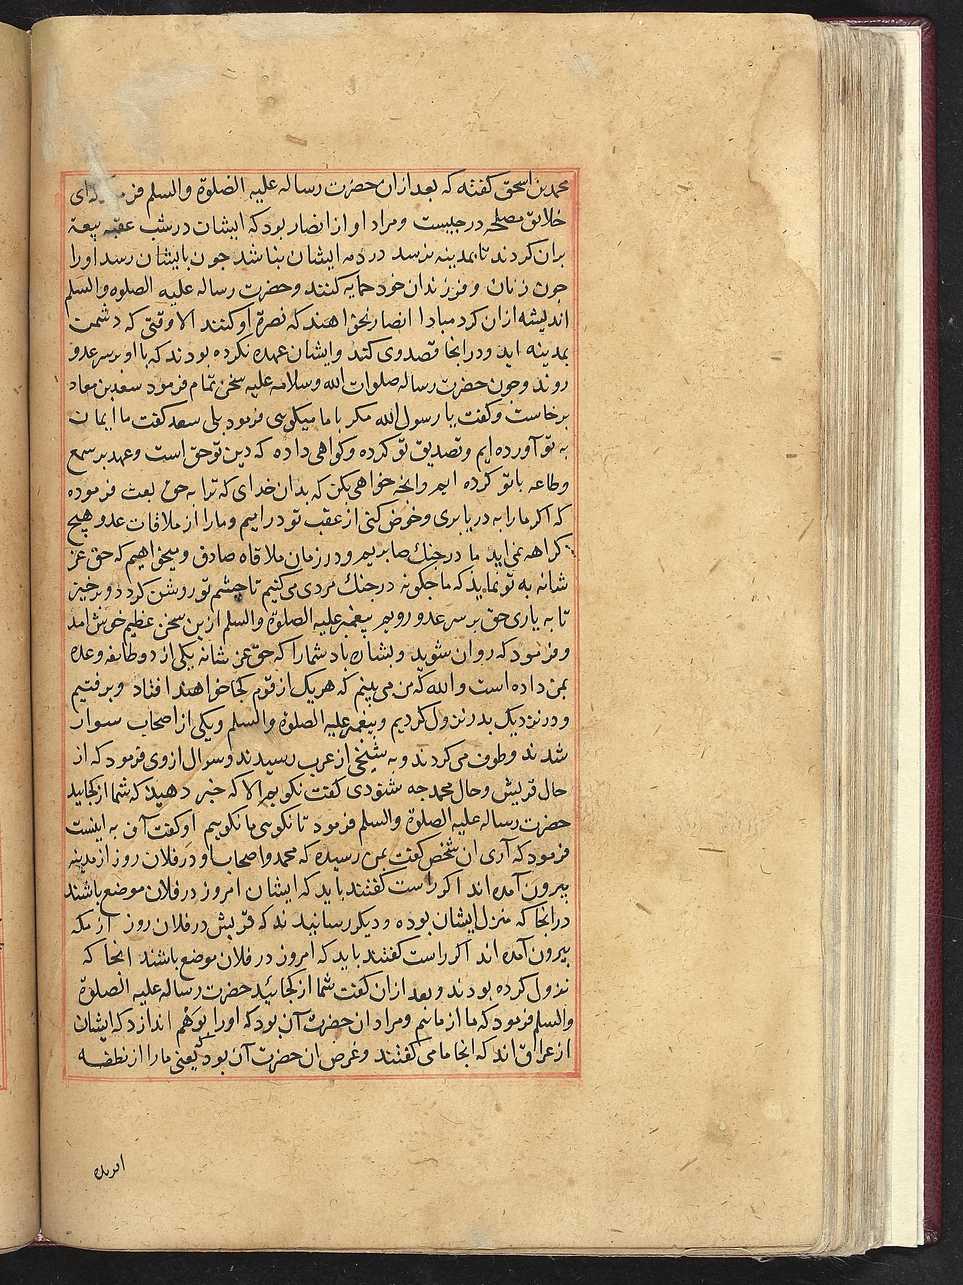 محمد بن اسحق گفته که بعد ازان حضرت رساله علیه الصلوة والسلم فرمود که ای
خلائق مصلحت درچیست و مراد او از انصار بود که ایشان در شب عقبه بیعة
بران کردند تا بمدینه نرسد در ذمه ایشان نباشد چون بایشان رسد اورا
چون زنان و فرزندان خود حمایه کنند و حضرت رساله علیه الصلوه والسلم
اندیشه ازان کرد مبادا انصار نخواهند که نصرة او کنند الا وقتی که دشمن
بمدینه اید و در انجا قصد وی کند و ایشان عهده نکرده بودند که با او بر سر عدو
روند و چون حضرت رساله صلوات الله وسلامه علیه سخن تمام فرمود سعد بن معاد
برخاست و گفت یا رسول الله مکر با ما میکوئی فرمود بلی سعد گفت ما ایمان
به تو آورده ایم و تصدیق تو کرده و کواهی داده که دین تو حق است و عهد بر سمع
وطاعه با تو کرده ایم و انچه خواهی بکن که بدان خدای که ترا به حق بعث فرموده
که اکر مارا به دریا بری و خوض کنی از عقب تو در اییم و مارا از ملاقات عدو هیچ
کراهه نمی اید ما در جنك صابریم و در زمان ملاقاه صادق و میخواهیم که حق عز
شانه به تو نماید که ما چکونه در جنك مردی می کنیم تا چشم تو روشن کردد و برخیز
تا به یاری حق بر سر عدو رویم پیغمبر علیه الصلوة والسلم ازین سخن عظیم خوش امد
و فرمود که روان شوید و بشاره باد شما را که حق عز شانه یکی از دو طایفه وعده
بمن داده است و الله که من می بینم که هر یک از قوم کجا خواهند افتاد و برفتیم
و در نزدیک بدر نزول کردیم و پیغمبر علیه الصلوة والسلم و یکی از اصحاب سوار
شدند و طوف می کردند و به شیخی از عرب رسیدند و سوال از وی فرمود که از
حال قریش و حال محمد چه شنودی گفت نکویم الا که خبر دهید که شما از کجایید
حضرت رساله علیه الصلوة والسلم فرمود تا نکوئی ما نکوییم او گفت آن به اینست
فرمود که آری ان شخص گفت بمن رسیده که محمد و اصحاب او در فلان روز از مدینه
بیرون آمده اند اکر راست گفتند باید که ایشان امروز در فلان موضع باشند
در انجا که منزل ایشان بوده و دیکر رسانیدند که قریش در فلان روز از مکه
بیرون آمده اند اکر راست گفتند باید که امروز در فلان موضع باشند انجا که
نزول کرده بودند و بعد ازان گفت شما از کجائید حضرت رساله علیه الصلوة
والسلم فرمود که ما از مائیم و مراد ان حضرت آن بود که اورا بوهم اندازد که ایشان
از عراق اند که انجا ما می گفتند و غرض ان حضرت آن بود که یعنی مارا از نطفه